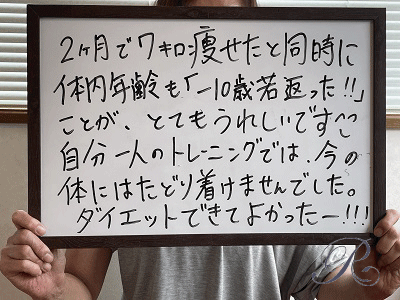 2ヶ月で7キロ痩せたと同時に
体内年齢も「-10歳若返った!!」
ことが、とてもうれしいです^^
自分一人のトレーニングでは、今の
体にはたどり着けませんでした。
ダイエットできてよかったー!!!
R